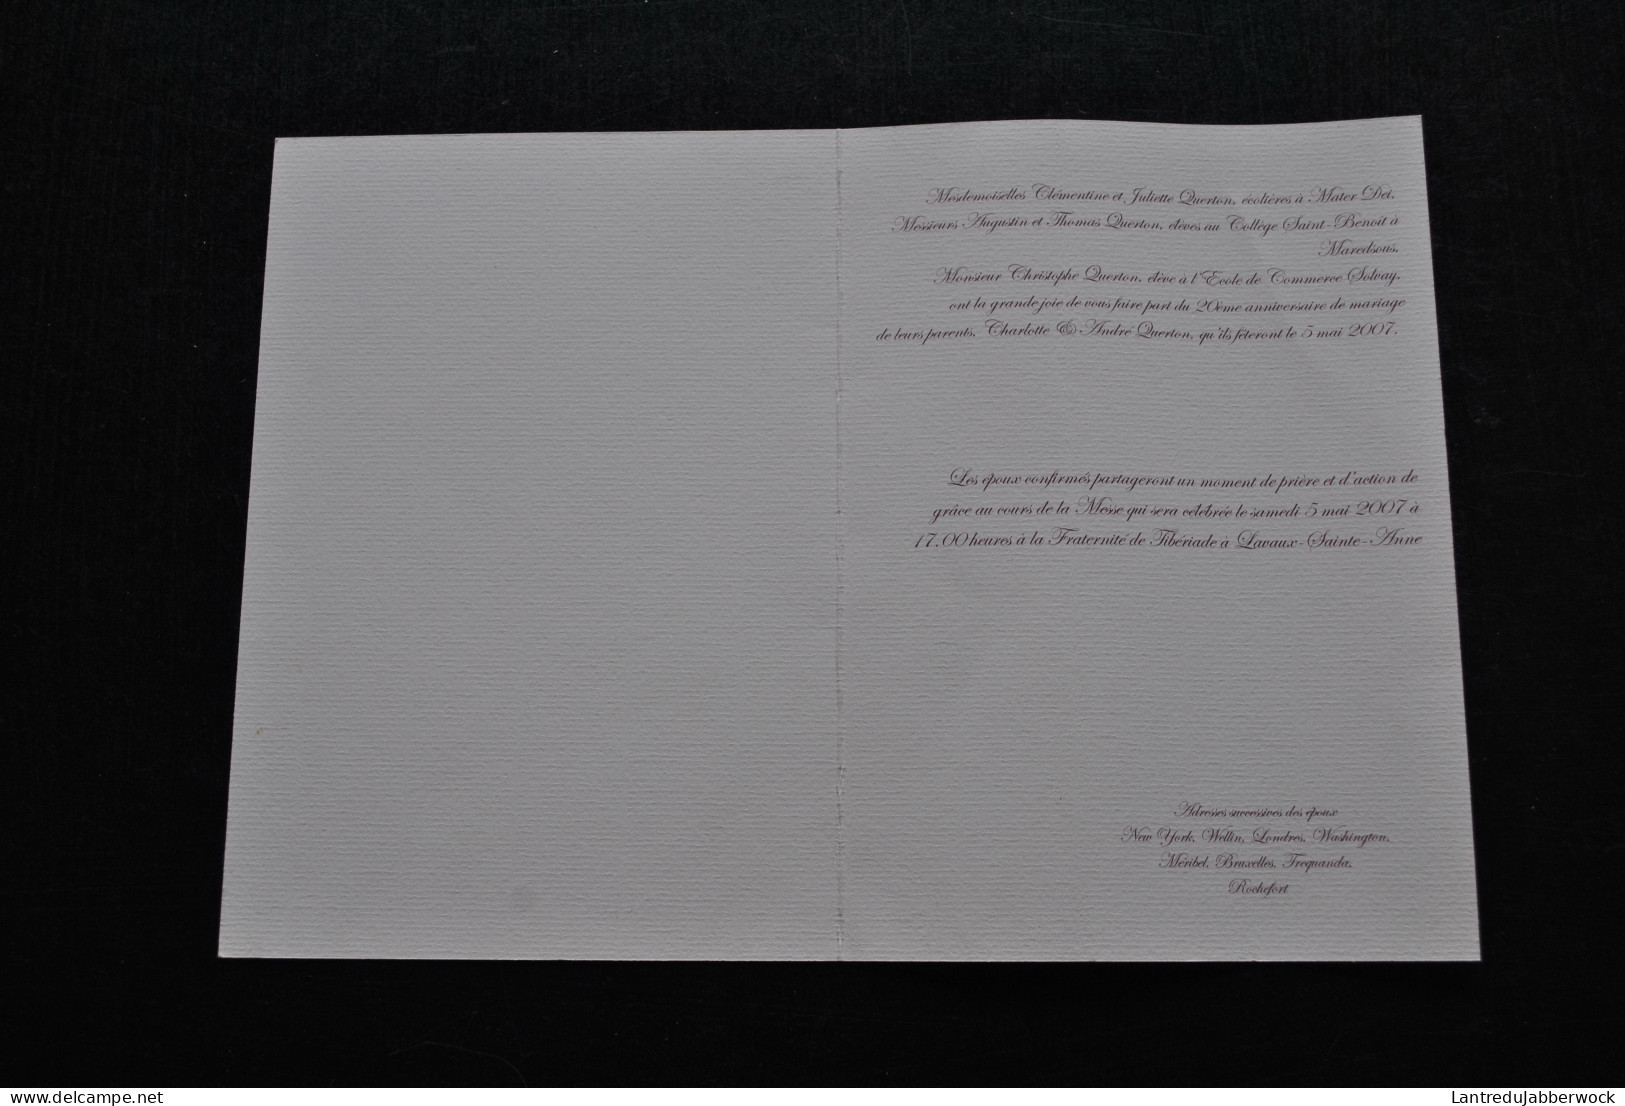 Mesdemoiselles Clémentine et Juliette Querton, écolières à Mater Dei,
Messieurs Augustin et Thomas Querton, élèves au Collège Saint-Benoit à
Maredsous,
Monsieur Christophe Querton, élève à l'Ecole de Commerce Solvay,
ont la grande joie de vous faire part du 20ème anniversaire de mariage
de leurs parents, Charlotte & André Querton, qu'ils fêteront le 5 mai 2007.
Les époux confirmés partageront un moment de prière et d'action de
grâce au cours de la Messe qui sera célébrée le samedi 5 mai 2007 à
17.00 heures à la Fraternité de Tibériade à Lavaux-Sainte-Anne
Adresses successives des époux
New York, Wellin, Londres, Washington,
Méribel, Bruxelles, Trequanda,
Rochefort
delcampe.net
LantreduJabberwock